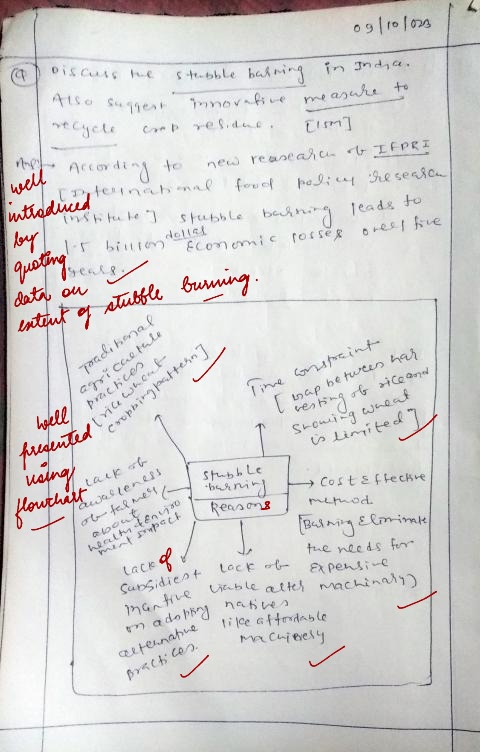 09/10/023
Q Discuss the stubble burning in India.
Also suggest innovative measure to
recycle crop residue. [15M]
→ According to new reasearch of IFPRI
[International food policy research
institute] stubble burning leads to
1.5 billion dollar Economic losses over five
years.
well
introduced
by
quoting
data on
extent of stubble burning.
Traditional
agriculture
practices
[rice wheat
cropping pattern]
Time constraint
[Gap between har
vesting of rice and
showing wheat
is limited]
well
presented
using
flowchart
stubble
burning
Reasons
Lack of
awareness
of farmers
about
health & enviro
ment impact
Cost Effective
method
[Burning Eliminate
the needs for
expensive
machinary]
Lack of
subsidies +
on adopting
alternative
practices.
Lack of
viable alter
natives
like affordable
machinery